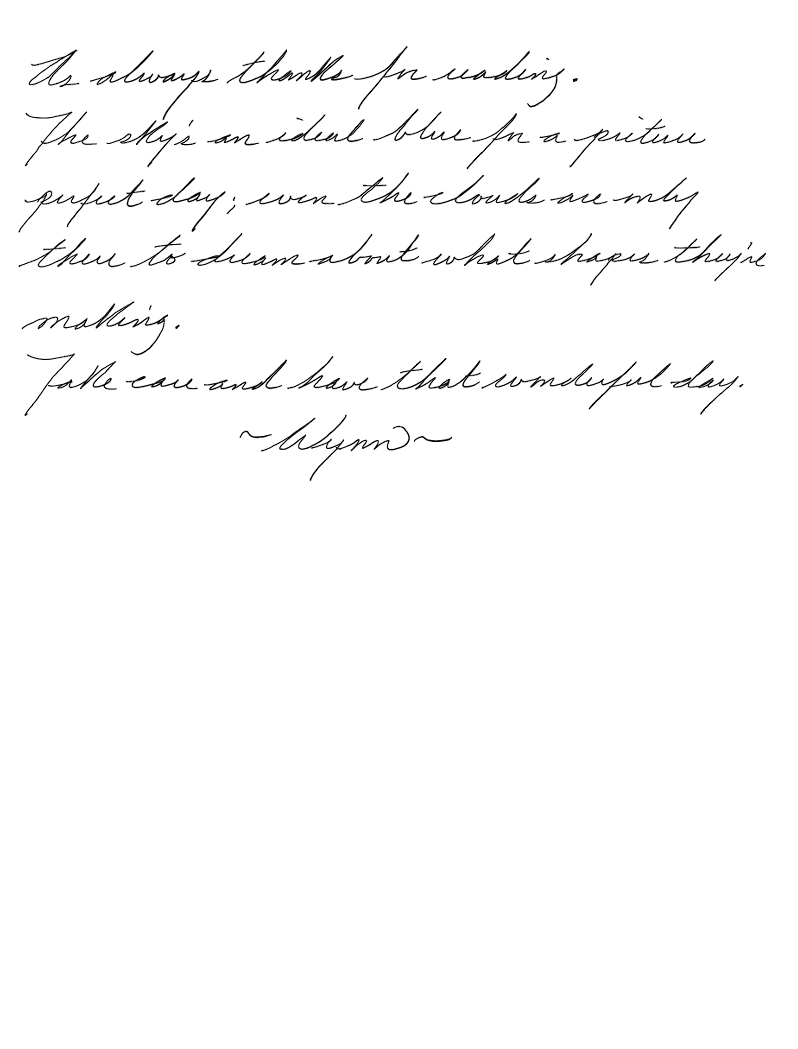 As always thanks for reading.
The sky's an ideal blue for a picture
perfect day; even the clouds are only
there to dream about what shapes they're
making.
Take care and have that wonderful day.
~Wynn~